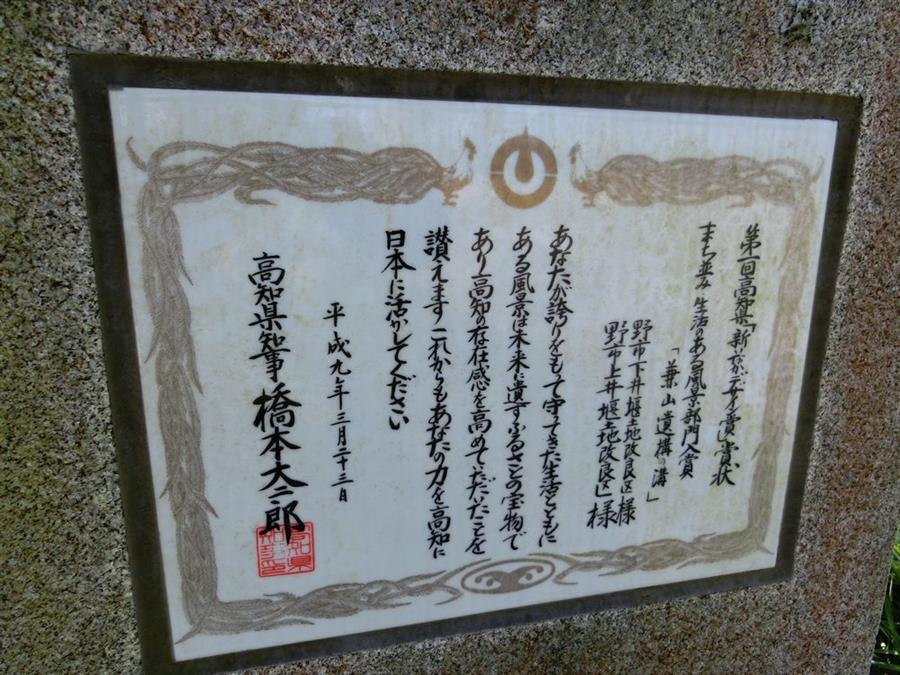 第一回高知県「新しいなかデザイン賞」賞状
まち並み 生活のある風景部門入賞
「兼山遺構の溝」
野市下井堰土地改良区様
野市上井堰土地改良区様
あなたが誇りをもって守ってきた生活とともに
ある風景は未来へ遺すふるさとの宝物で
あり高知の存在感を高めていただいたことを
讃えます これからもあなたの力を高知に
日本に活かしてください
平成九年三月二十三日
高知県知事 橋本大二郎